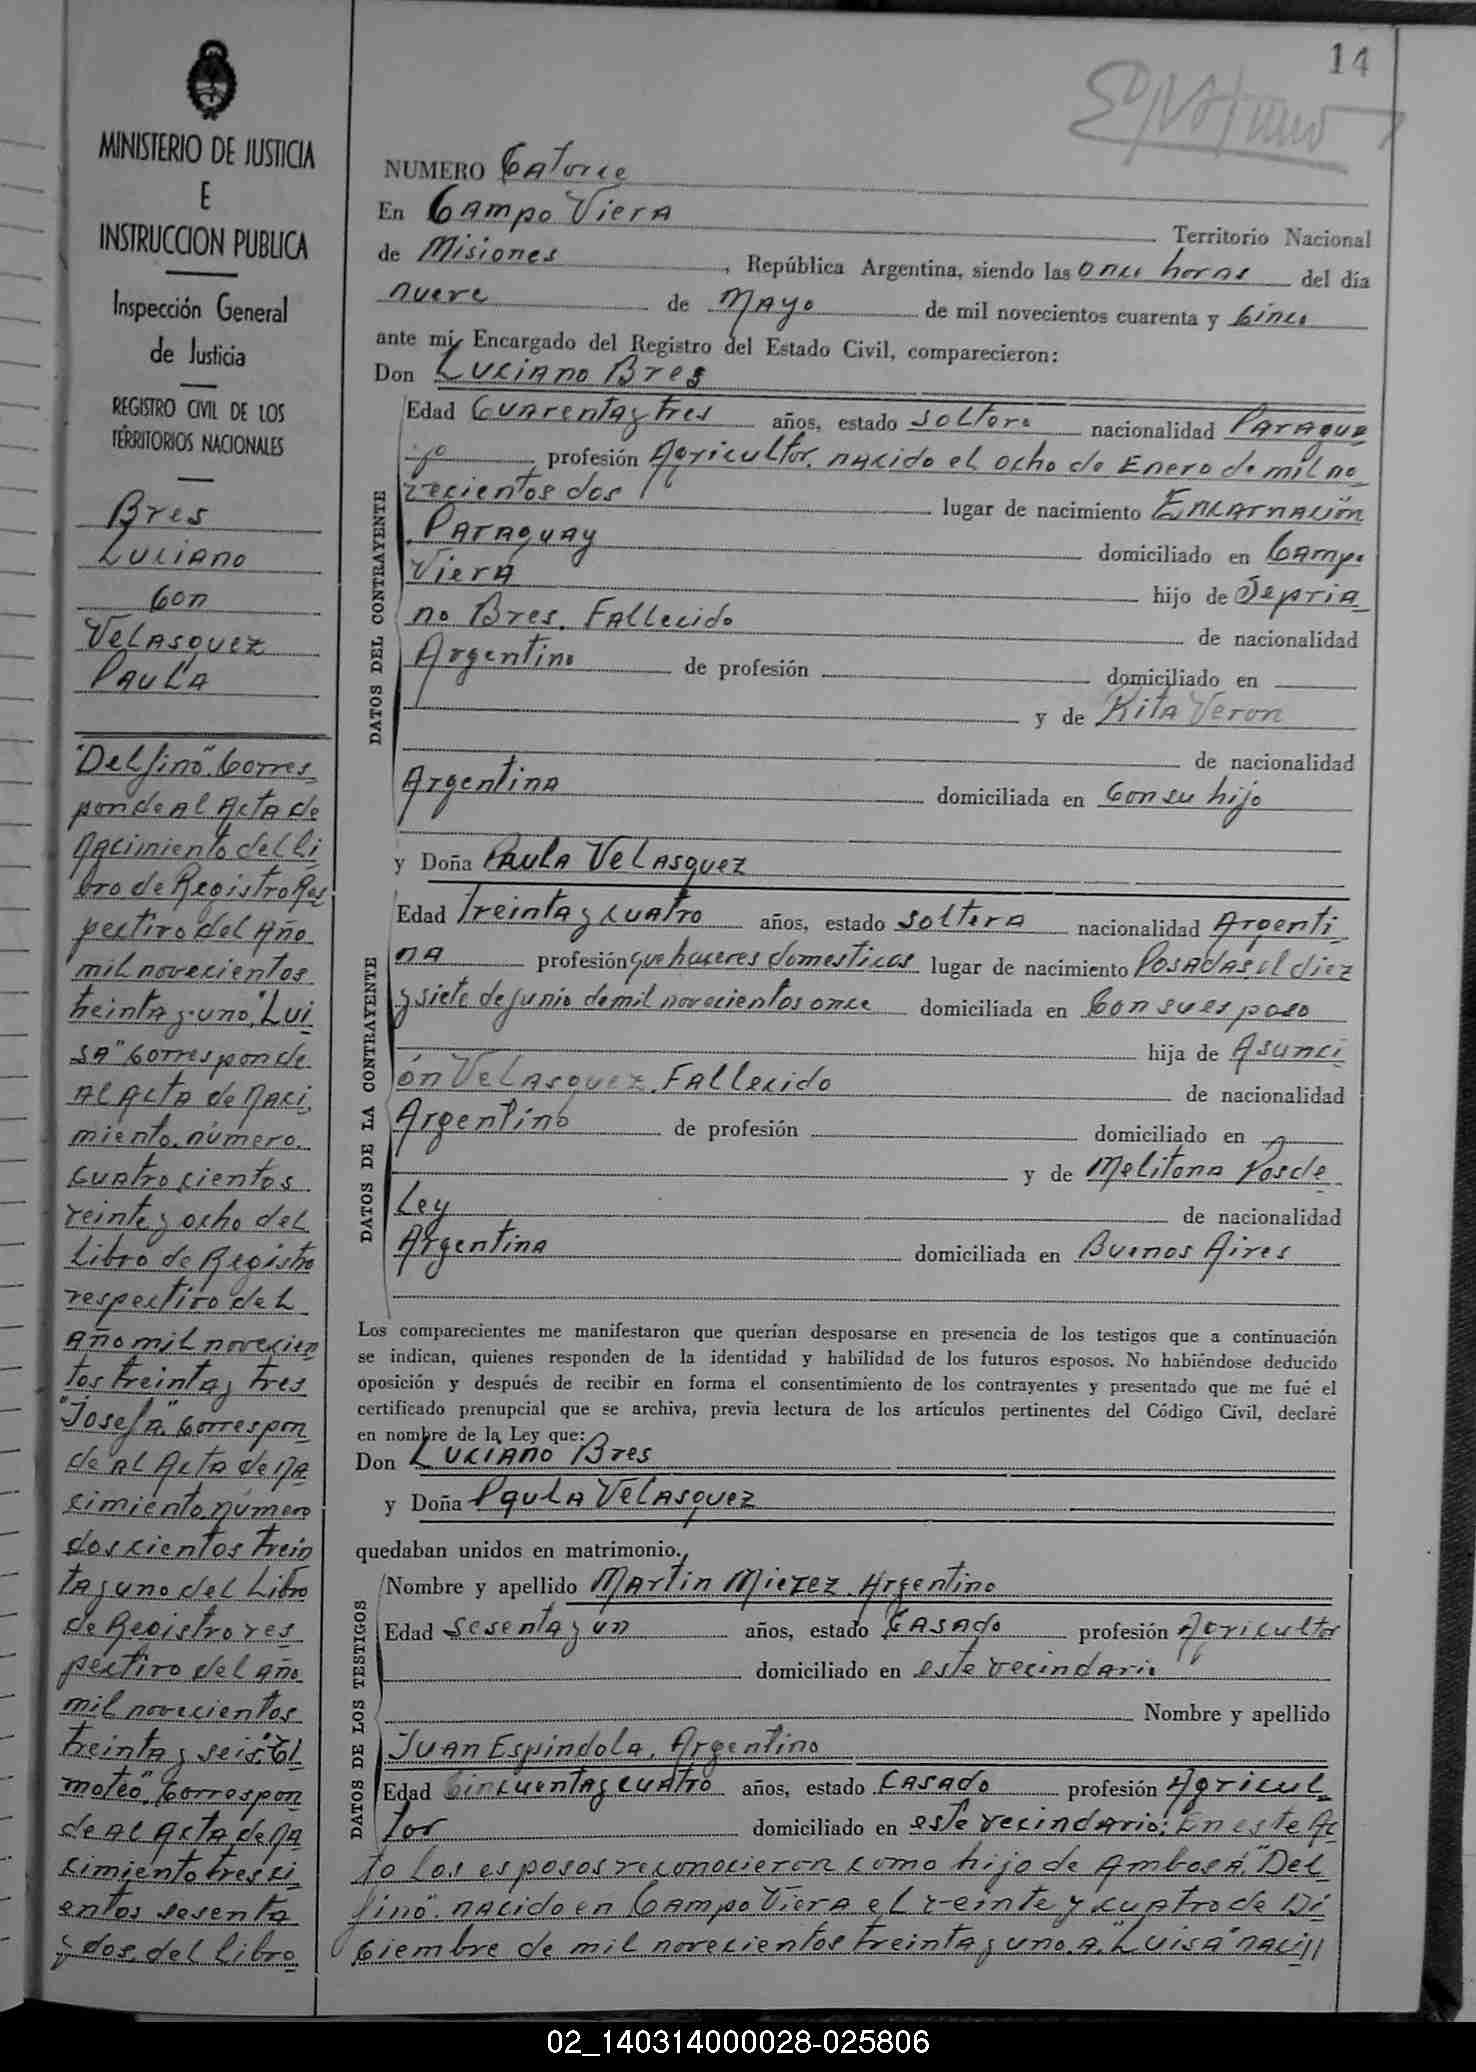 14
MINISTERIO DE JUSTICIA
E
INSTRUCCION PUBLICA
Inspección General
de Justicia
REGISTRO CIVIL DE LOS
TERRITORIOS NACIONALES
Bres
Luciano
Con
Velasquez
Paula
"Delfino". Corres
ponde al Acta de
Nacimiento del li
bro de Registro Res
pectivo del Año
mil novecientos
treinta y uno, "Lui
sa" Corresponde
al Acta de Naci
miento número
cuatrocientos
veinte y ocho del
Libro de Registro
respectivo del
Año mil novecien
tos treinta y tres
"Josefa", Correspon
de al Acta de Na
cimiento número
doscientos trein
ta y uno del Libro
de Registro res
pectivo del año
mil novecientos
treinta y seis "Ti
moteo", Correspon
de al Acta de Na
cimiento tresci
entos sesenta
y dos, del libro
NUMERO Catorce
En Campo Viera Territorio Nacional
de Misiones, República Argentina, siendo las once horas del día
nueve de Mayo de mil novecientos cuarenta y Cinco
ante mi, Encargado del Registro del Estado Civil, comparecieron:
Don Luciano Bres
DATOS DEL CONTRAYENTE
Edad Cuarenta y tres años, estado soltero nacionalidad Paragua
yo, profesión Agricultor, nacido el ocho de Enero de mil no
vecientos dos lugar de nacimiento Encarnación
Paraguay domiciliado en Campo
Viera hijo de Sepria
no Bres. Fallecido de nacionalidad
Argentino de profesión domiciliado en
y de Rita Veron
de nacionalidad
Argentina domiciliada en Con su hijo
y Doña Paula Velasquez
DATOS DE LA CONTRAYENTE
Edad treinta y cuatro años, estado soltera nacionalidad Argenti
na profesión que haceres domesticos lugar de nacimiento Posadas, el diez
y siete de junio de mil novecientos once domiciliada en Con su esposo
hija de Asunci
ón Velasquez. Fallecido de nacionalidad
Argentino de profesión domiciliado en
y de Melitona Posde
Ley de nacionalidad
Argentina domiciliada en Buenos Aires
Los comparecientes me manifestaron que querían desposarse en presencia de los testigos que a continuación
se indican, quienes responden de la identidad y habilidad de los futuros esposos. No habiéndose deducido
oposición y después de recibir en forma el consentimiento de los contrayentes y presentado que me fué el
certificado prenupcial que se archiva, previa lectura de los artículos pertinentes del Código Civil, declaré
en nombre de la Ley que:
Don Luciano Bres
y Doña Paula Velasquez
quedaban unidos en matrimonio.
DATOS DE LOS TESTIGOS
Nombre y apellido Martin Mierez. Argentino
Edad sesenta y un años, estado Casado profesión Agricultor
domiciliado en este vecindario
Nombre y apellido
Juan Espindola, Argentino
Edad Cincuenta y cuatro años, estado Casado profesión Agricul
tor domiciliado en este vecindario; En este Ac
to los esposos reconocieron como hijo de ambos A, "Del
fino". nacido en Campo Viera el veinte y cuatro de Di
ciembre de mil novecientos treinta y uno. A, "Luisa" naci
02_140314000028-025806